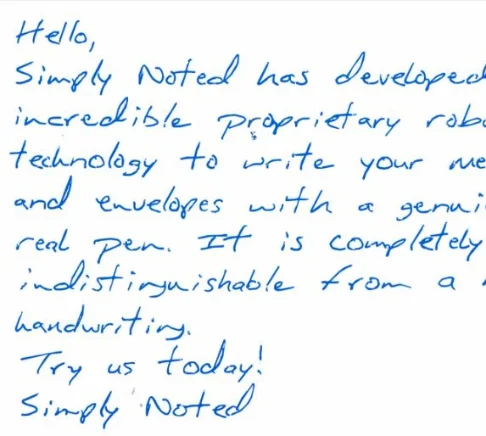 Hello,
Simply Noted has developed
incredible proprietary robo
technology to write your me
and envelopes with a genui
real pen. It is completely
indistinguishable from a
handwriting.
Try us today!
Simply Noted